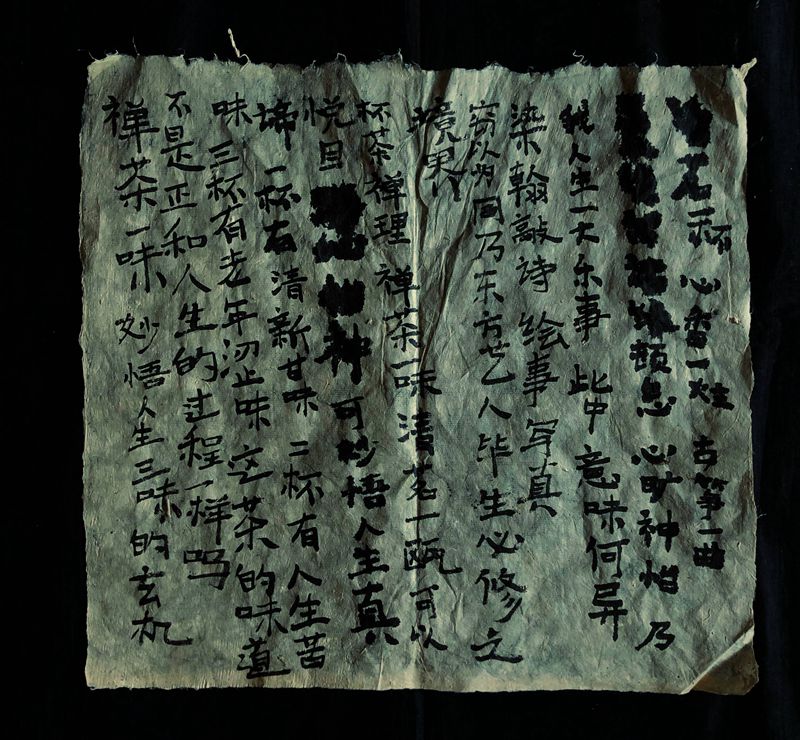 茗一杯 心香一炷 古筝一曲
顿息 心旷神怡 乃
我人生一大乐事 此中意味何异
染翰敲诗 绘事写真
窃以为同乃东方艺人毕生必修之
境界
杯茶禅理 禅茶一味 清茗一瓯 可以
悦目 神 可妙悟人生真
谛 一杯有清新甘味 二杯有人生苦
味 三杯有老年涩味 这茶的味道
不是正和人生的过程一样吗
禅茶一味 妙悟人生三味的玄机